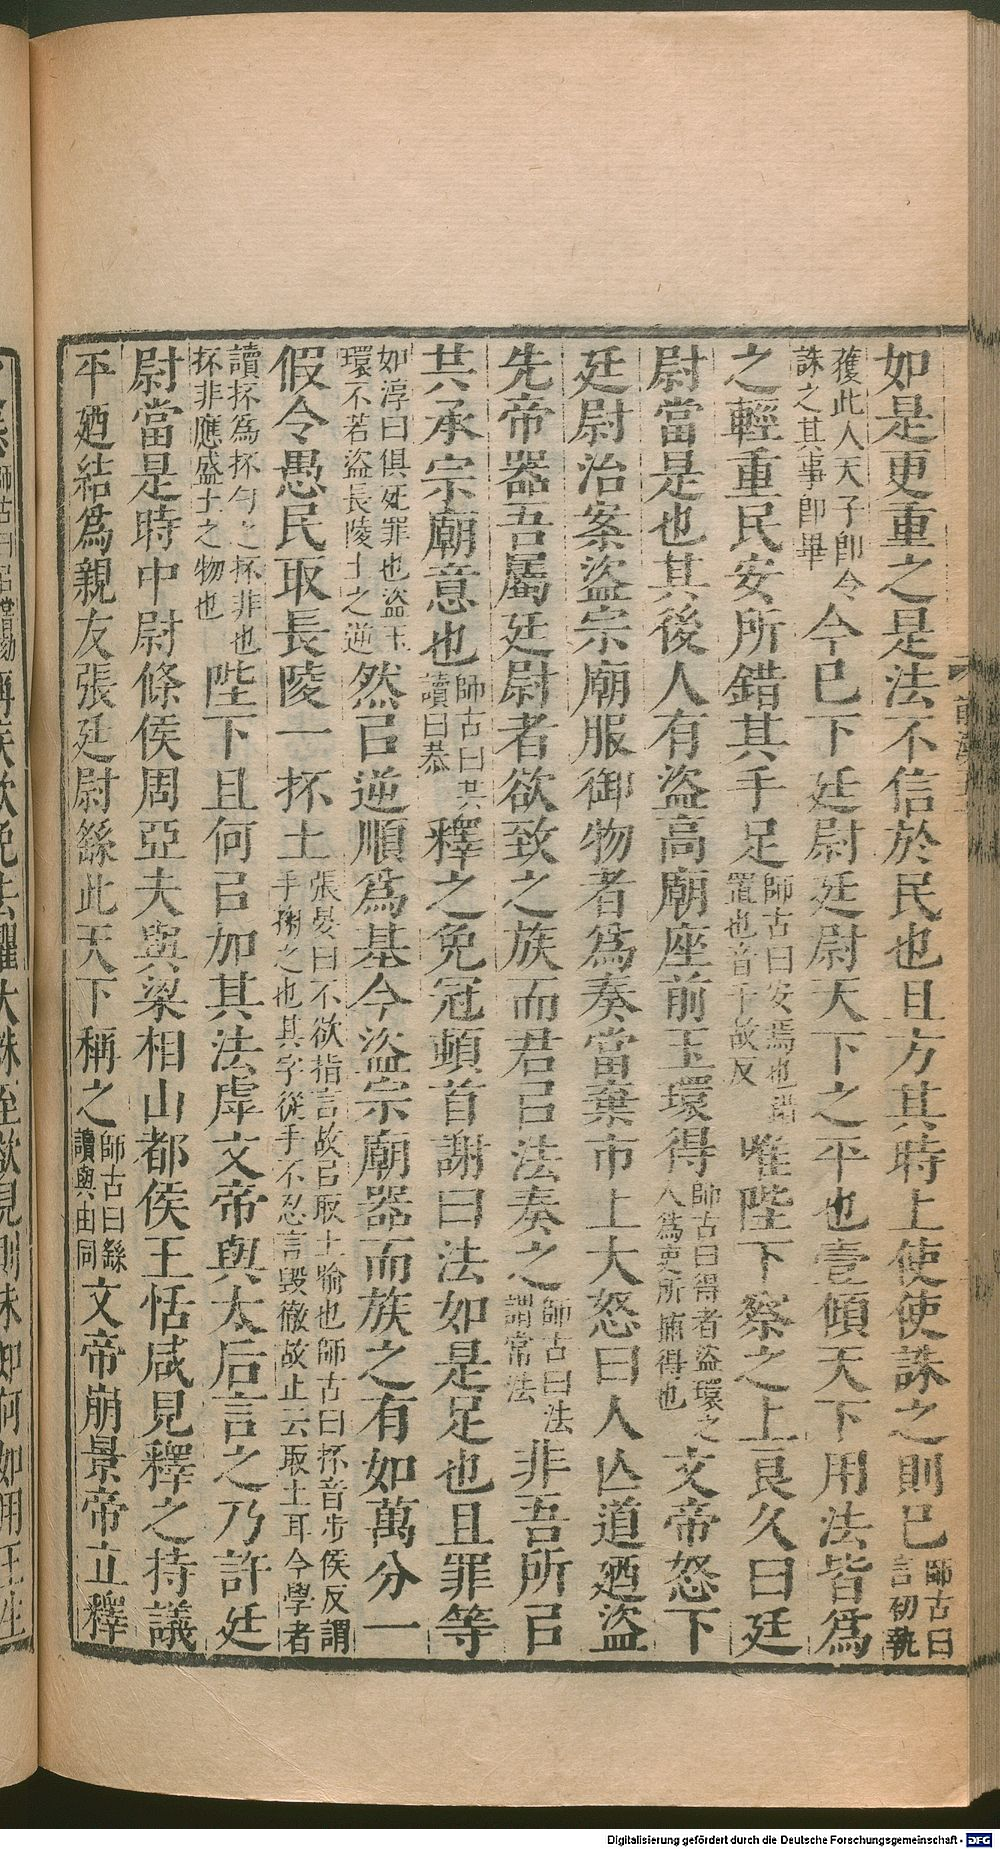 如是更重之是法不信於民也且方其時上使使誅之則已師古曰言初執
獲此人天子即令誅之其事即畢今已下廷尉廷尉天下之平也壹傾天下用法皆爲
之輕重民安所錯其手足師古曰安焉也錯置也音千故反唯陛下察之上良久曰廷
尉當是也其後人有盜高廟座前玉環得師古曰得者盜環之人爲吏所捕得也文帝怒下
廷尉治案盜宗廟服御物者爲奏當棄市上大怒曰人亾道廼盜
先帝器吾屬廷尉者欲致之族而君㠯法奏之師古曰法謂常法非吾所㠯
共承宗廟意也師古曰共讀曰恭釋之免冠頓首謝曰法如是足也且罪等
如淳曰俱死罪也盜玉環不若盜長陵土之逆然㠯逆順爲基今盜宗廟器而族之有如萬分一
假令愚民取長陵一抔土張晏曰不欲指言故㠯取土喻也師古曰抔音步侯反謂手掬之也其字從手不忍言毀徹故止云取土耳今學者
讀抔爲杯勺之杯非也杯非應盛土之物也陛下且何㠯加其法虖文帝與太后言之乃許廷
尉當是時中尉條侯周亞夫與梁相山都侯王恬咸見釋之持議
平廼結爲親友張廷尉繇此天下稱之師古曰繇讀與由同文帝崩景帝立釋
Digitalisierung gefördert durch die Deutsche Forschungsgemeinschaft - DFG